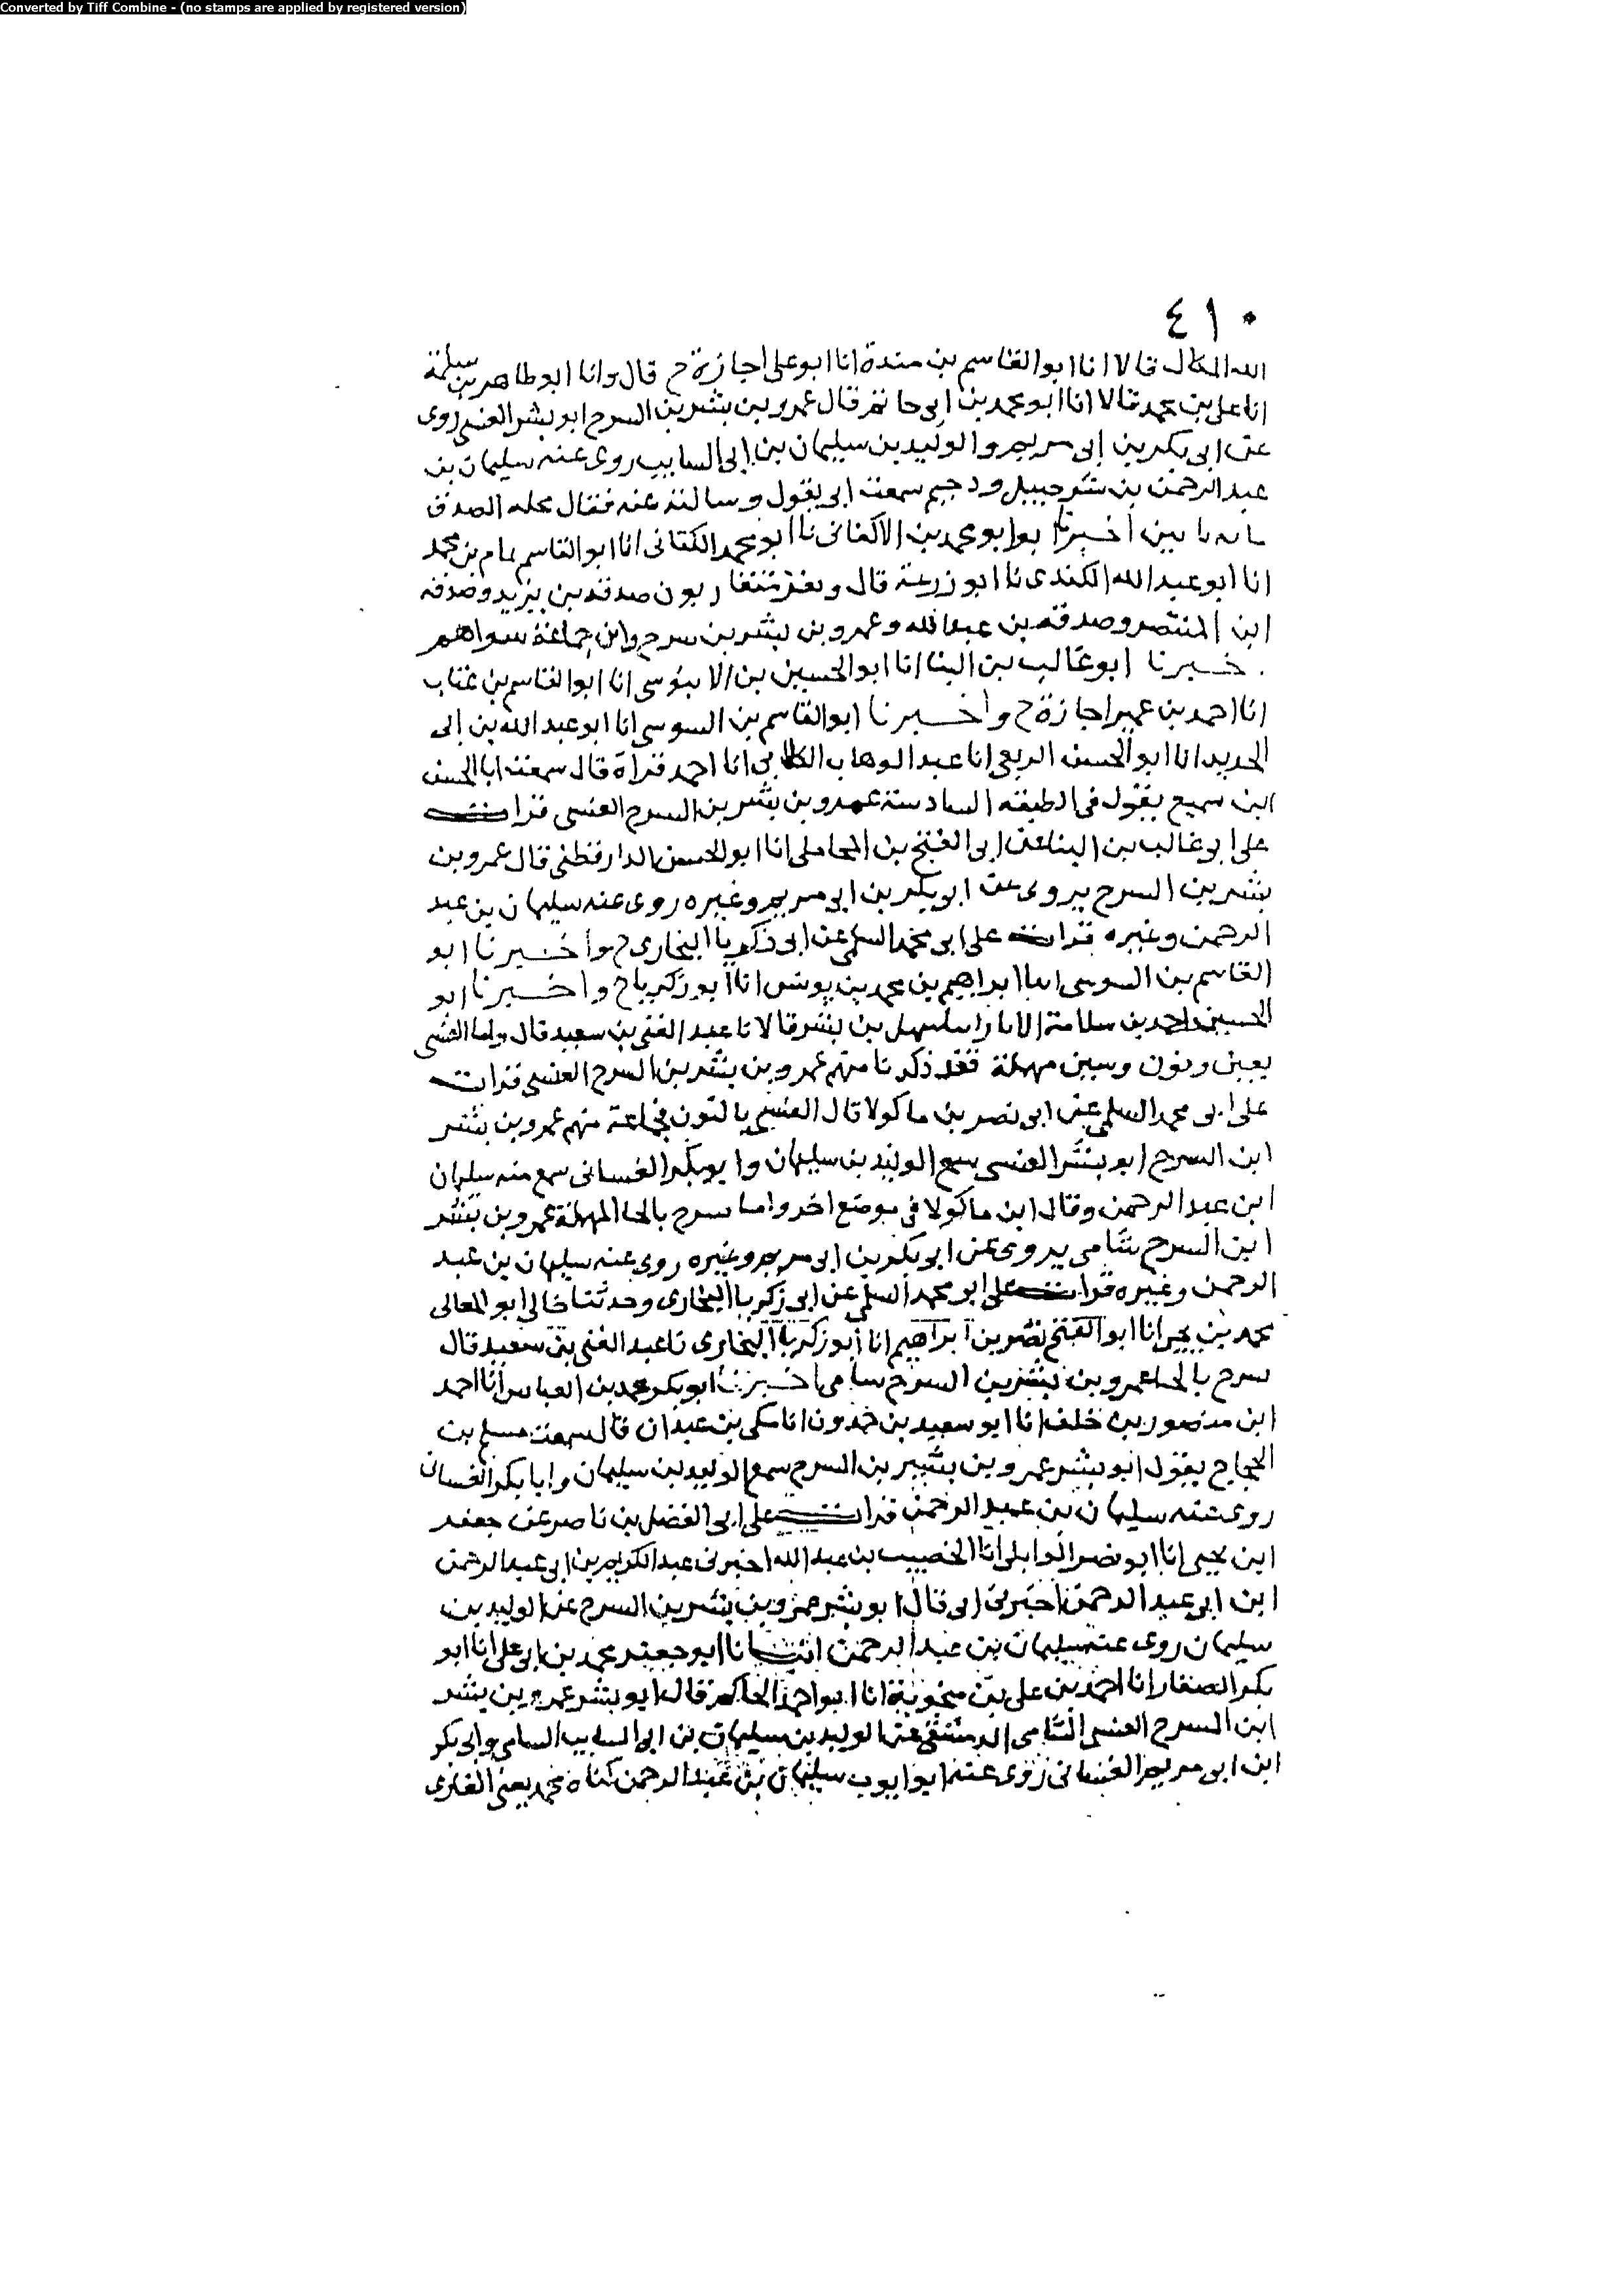 Converted by Tiff Combine - (no stamps are applied by registered version)
٤١٠
الله الخلال قالا انا ابو القاسم بن مندة انا ابو علي اجازة ح قال وانا ابو طاهر بن سلمة
انا علي بن محمد قالا انا ابو محمد بن ابي حاتم قال عمرو بن بشر بن السرح ابو بشر العنسي روى
عن ابي بكر بن ابي مريم والوليد بن سليمان بن ابي السايب روى عنه سليمان بن
عبد الرحمن بن شرحبيل ودحيم سمعت ابي يقول وسالته عنه فقال محله الصدق
ما به باس اخبرنا ابو محمد بن الاكفاني نا ابو محمد الكتاني انا ابو القاسم تمام بن محمد
انا ابو عبد الله الكندي نا ابو زرعة قال ونفر متقاربون صدقه بن يزيد وصدقه
ابن المنتصر وصدقه بن عبد الله وعمرو بن بشر بن سرح وابن جماعة سواهم
خبرنا ابو غالب بن البنا انا ابو الحسين بن الابنوسي انا ابو القاسم بن عتاب
انا احمد بن عمير اجازة ح واخبرنا ابو القاسم بن السوسي انا ابو عبد الله بن ابي
الحديد انا ابو الحسن الربعي انا عبد الوهاب الكلابي انا احمد قراة قال سمعت ابا الحسن
ابن سميع يقول في الطبقه السادسة عمرو بن بشر بن السرح العنسي قرات
على ابي غالب بن البنا عن ابي الفتح بن المحاملي انا ابو الحسن الدارقطني قال عمرو بن
بشر بن السرح يروى عن ابي بكر بن ابي مريم وغيره روى عنه سليمان بن عبد
الرحمن وغيره قرات على ابي محمد السلمي عن ابي زكريا البخاري ح واخبرنا ابو
القاسم بن السوسي انا ابراهيم بن محمد بن يونس انا ابو زكريا ح واخبرنا ابو
الحسين احمد بن سلامة الابار انا سهل بن بشر قالا نا عبد الغني بن سعيد قال واما العنسي
بعين ونون وسين مهملة فقد ذكرنا منهم عمرو بن بشر بن السرح العنسي قرات
على ابي محمد السلمي عن ابي نصر بن ماكولا قال العنسي بالنون فجماعة منهم عمرو بن بشر
ابن السرح ابو بشر العنسي سمع الوليد بن سليمان وابو بكر الغساني سمع منه سليمان
ابن عبد الرحمن وقال ابن ماكولا في موضع اخر واما سرح بالحا المهملة عمرو بن بشر
ابن السرح شامي يروى عن ابي بكر بن ابي مريم وغيره روى عنه سليمان بن عبد
الرحمن وغيره قرات على ابو محمد السلمي عن ابي زكريا البخاري وحدثنا خالي ابو المعالي
محمد بن يحيى انا ابو الفتح نصر بن ابراهيم انا ابو زكريا البخاري نا عبد الغني بن سعيد قال
سرح بالحا عمرو بن بشر بن السرح سامي اخبرنا ابو بكر محمد بن العباس انا احمد
ابن منصور بن خلف انا ابو سعيد بن حمدون انا مكي بن عبدان قال سمعت مسلم بن
الحجاج يقول ابو بشر عمرو بن بشير بن السرح سمع الوليد بن سليمان وابا بكر الغسان
روى عنه سليمان بن عبد الرحمن قرات على ابي الفضل بن ناصر عن جعفر
ابن يحيى انا ابو نصر الوايلي انا الخصيب بن عبد الله اخبرني عبد الكريم بن ابي عبد الرحمن
ابن ابي عبد الرحمن اخبرني ابي قال ابو بشر عمرو بن بشر بن السرح عن الوليد بن
سليمان روى عنه سليمان بن عبد الرحمن انبانا ابو جعفر محمد بن ابي علي انا ابو
بكر الصفار انا احمد بن علي بن منجويه انا ابو احمد الحاكم قال ابو بشر عمرو بن بشر
ابن السرح العنسي الشامي الدمشقي عن الوليد بن سليمان بن ابي السايب السامي وابي بكر
ابن ابي مريم الغساني روى عنه ابو ايوب سليمان بن عبد الرحمن كناه محمد يعني الغازي